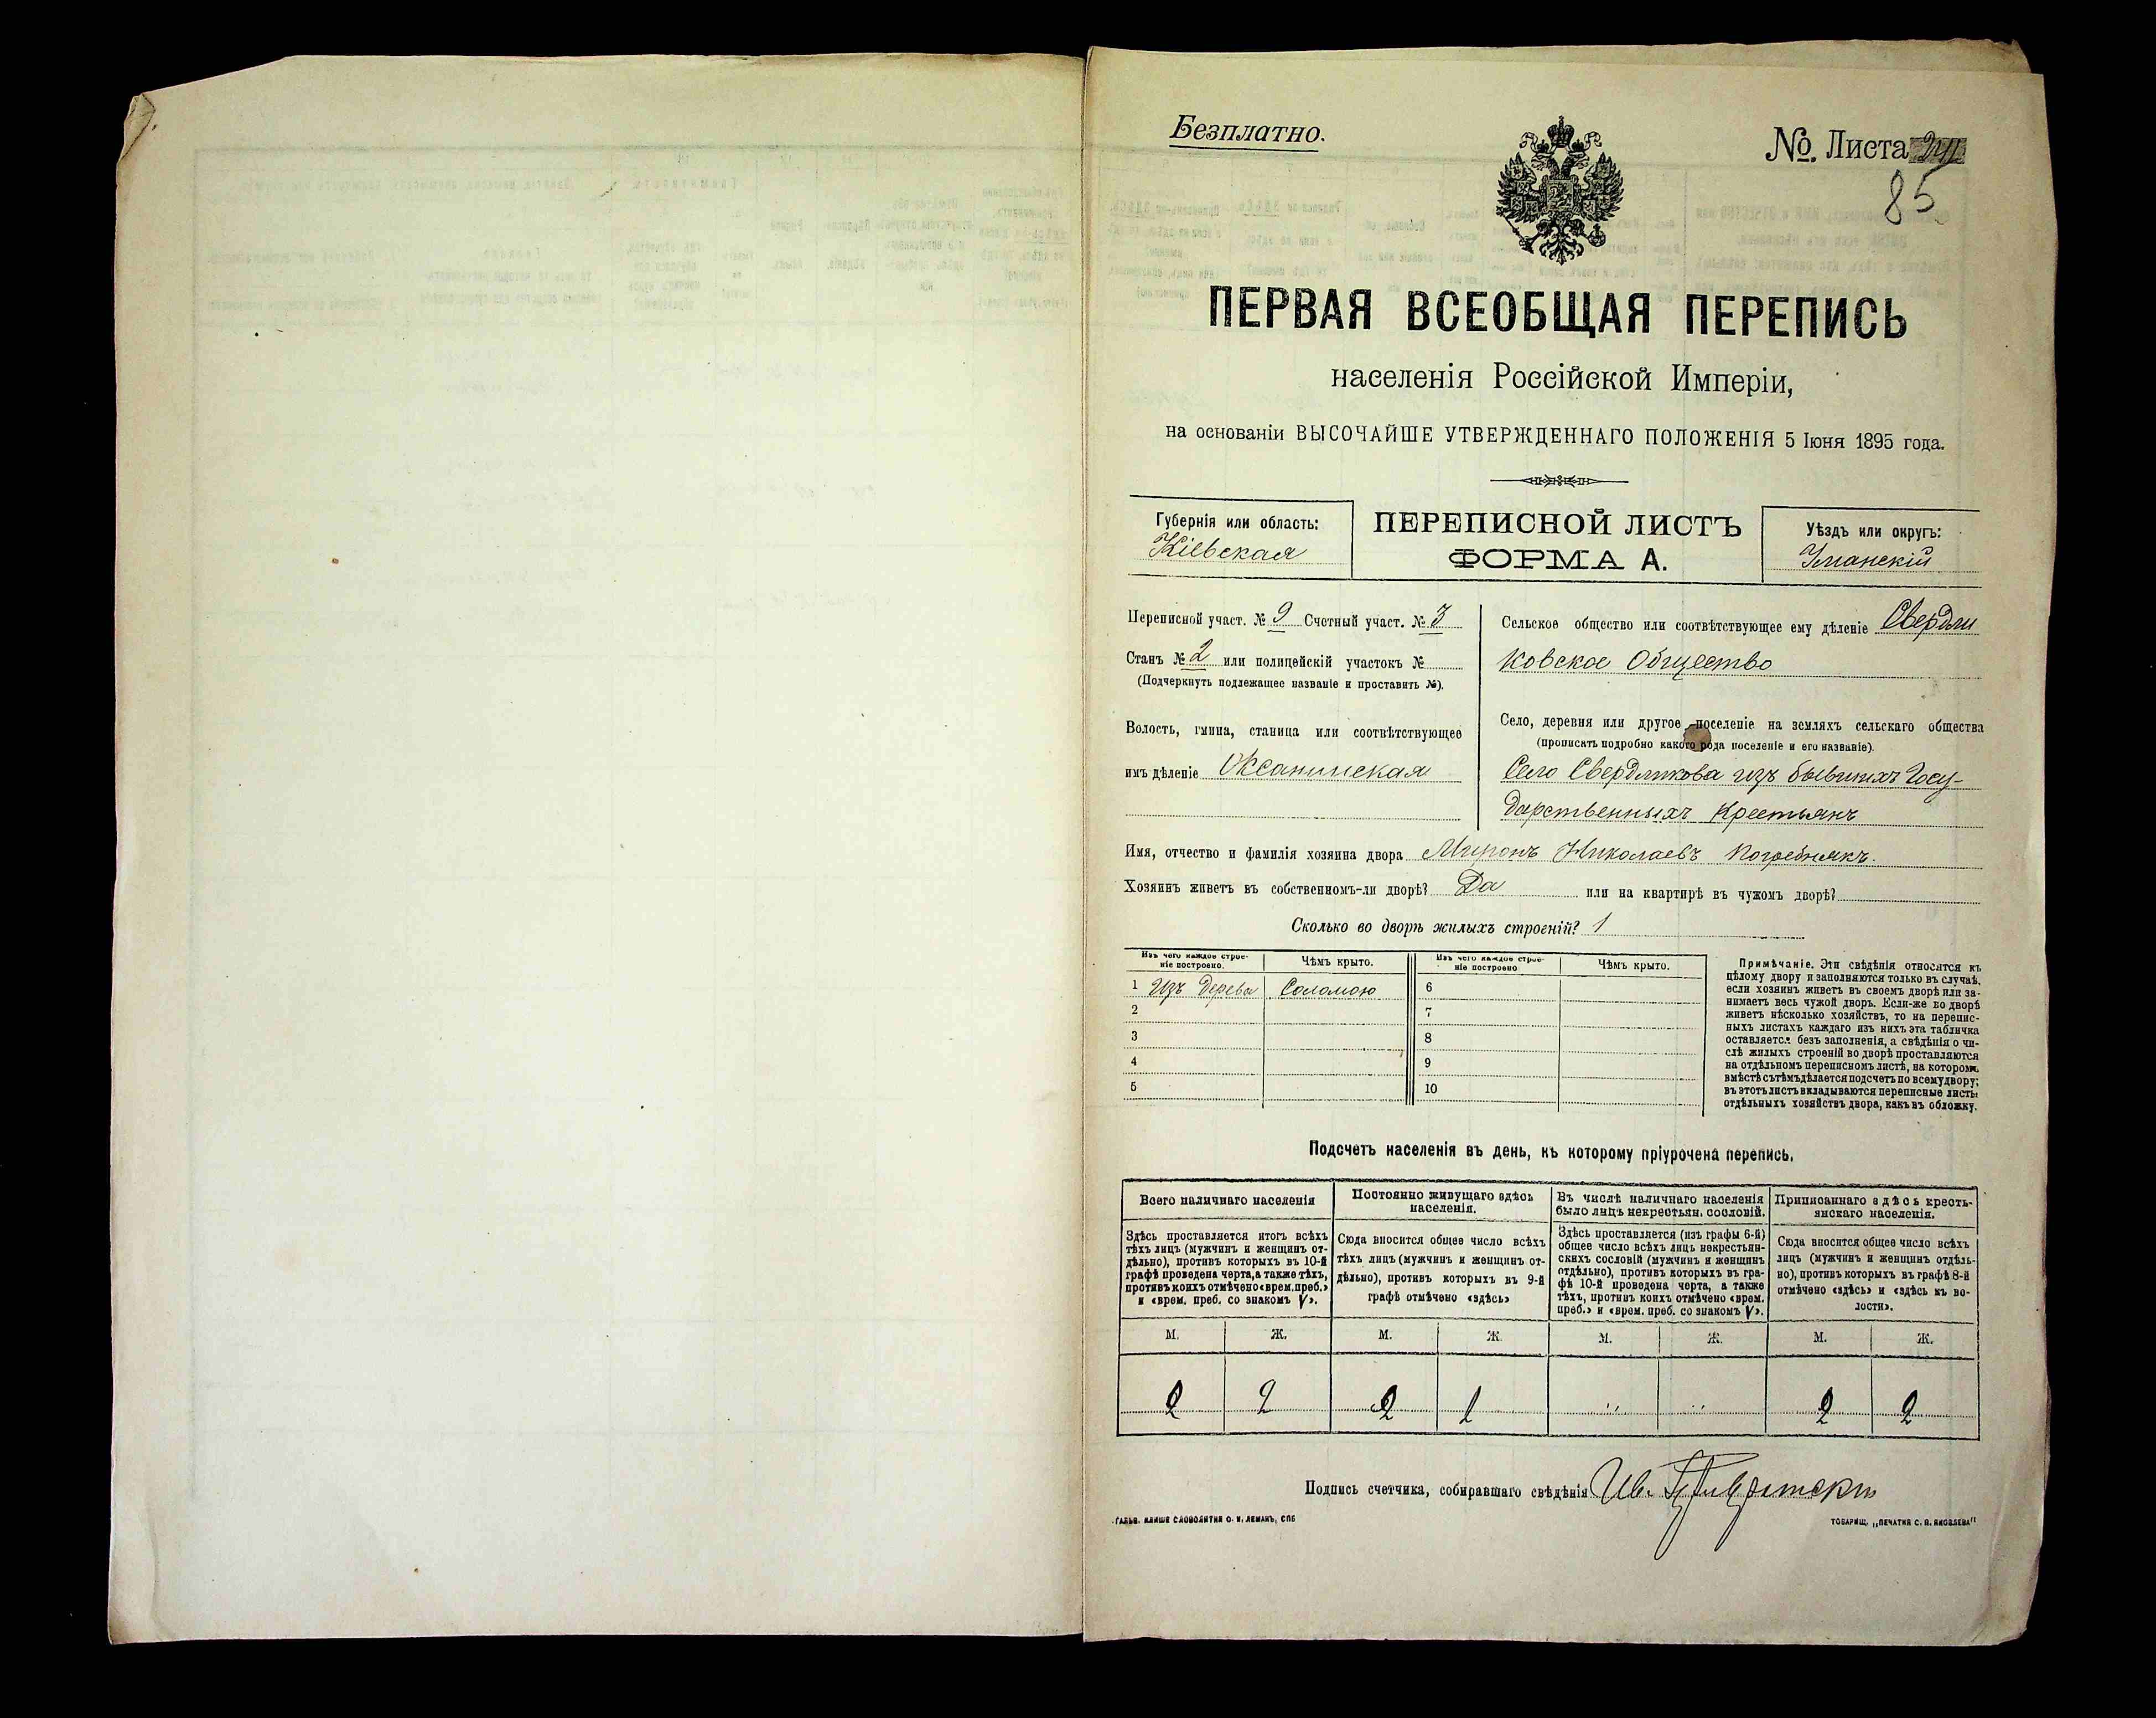 Безплатно.
№ Листа 24
85
ПЕРВАЯ ВСЕОБЩАЯ ПЕРЕПИСЬ
населенія Россійской Имперіи,
на основаніи ВЫСОЧАЙШЕ УТВЕРЖДЕННАГО ПОЛОЖЕНІЯ 5 Іюня 1895 года.
Губернія или область:
Кіевская
ПЕРЕПИСНОЙ ЛИСТЪ
ФОРМА А.
Уѣздъ или округъ:
Уманскій
Переписной участ. № 9 Счетный участ. № 3
Станъ № 2 или полицейскій участокъ №
(Подчеркнуть подлежащее названіе и проставить №).
Волость, гмина, станица или соотвѣтствующее
имъ дѣленіе Оксанинская
Сельское общество или соотвѣтствующее ему дѣленіе Свердли
ковское Общество
Село, деревня или другое поселеніе на земляхъ сельскаго общества
(прописать подробно какого рода поселеніе и его названіе).
Село Свердликова изъ бывшихъ Госу-
дарственныхъ Крестьянъ
Имя, отчество и фамилія хозяина двора Миронъ Николаевъ Погребнякъ.
Хозяинъ живетъ въ собственномъ-ли дворѣ? Да или на квартирѣ въ чужомъ дворѣ?
Сколько во дворѣ жилыхъ строеній? 1
Изъ чего каждое строе-
ніе построено.
Чѣмъ крыто.
Изъ чего каждое строе-
ніе построено
Чѣмъ крыто.
1 Изъ дерева Соломою 6
2 7
3 8
4 9
5 10
Примѣчаніе. Эти свѣдѣнія относятся къ
цѣлому двору и заполняются только въ случаѣ,
если хозяинъ живетъ въ своемъ дворѣ или за-
нимаетъ весь чужой дворъ. Если-же во дворѣ
живетъ нѣсколько хозяйствъ, то на перепис-
ныхъ листахъ каждаго изъ нихъ эта табличка
оставляется безъ заполненія, а свѣдѣнія о чи-
слѣ жилыхъ строеній во дворѣ проставляются
на отдѣльномъ переписномъ листѣ, на которомъ
вмѣстѣ съ тѣмъ дѣлается подсчетъ по всему двору;
въ этотъ листъ вкладываются переписные листы
отдѣльныхъ хозяйствъ двора, какъ въ обложку.
Подсчетъ населенія въ день, къ которому пріурочена перепись.
Всего наличнаго населенія
Здѣсь проставляется итогъ всѣхъ
тѣхъ лицъ (мужчинъ и женщинъ от-
дѣльно), противъ которыхъ въ 10-й
графѣ проведена черта, а также тѣхъ,
противъ коихъ отмѣчено «врем. преб.»
и «врем. преб. со знакомъ V».
Постоянно живущаго здѣсь
населенія.
Сюда вносится общее число всѣхъ
тѣхъ лицъ (мужчинъ и женщинъ от-
дѣльно), противъ которыхъ въ 9-й
графѣ отмѣчено «здѣсь»
Въ числѣ наличнаго населенія
было лицъ некрестьян. сословій.
Здѣсь проставляется (изъ графы 6-й)
общее число всѣхъ лицъ некрестьян-
скихъ сословій (мужчинъ и женщинъ
отдѣльно), противъ которыхъ въ гра-
фѣ 10-й проведена черта, а также
тѣхъ, противъ коихъ отмѣчено «врем.
преб.» и «врем. преб. со знакомъ V».
Приписаннаго здѣсь кресть-
янскаго населенія.
Сюда вносится общее число всѣхъ
лицъ (мужчинъ и женщинъ отдѣль-
но), противъ которыхъ въ графѣ 8-й
отмѣчено «здѣсь» и «здѣсь къ во-
лости».
М. Ж. М. Ж. М. Ж. М. Ж.
2 2 2 1 " " 2 2
Подпись счетчика, собиравшаго свѣдѣнія Ив.
ГАЛЬВ. КЛИШЕ СЛОВОЛИТНИ О. И. ЛЕМАНЪ, СПБ
ТОВАРИЩ. „ПЕЧАТНЯ С. П. ЯКОВЛЕВА"